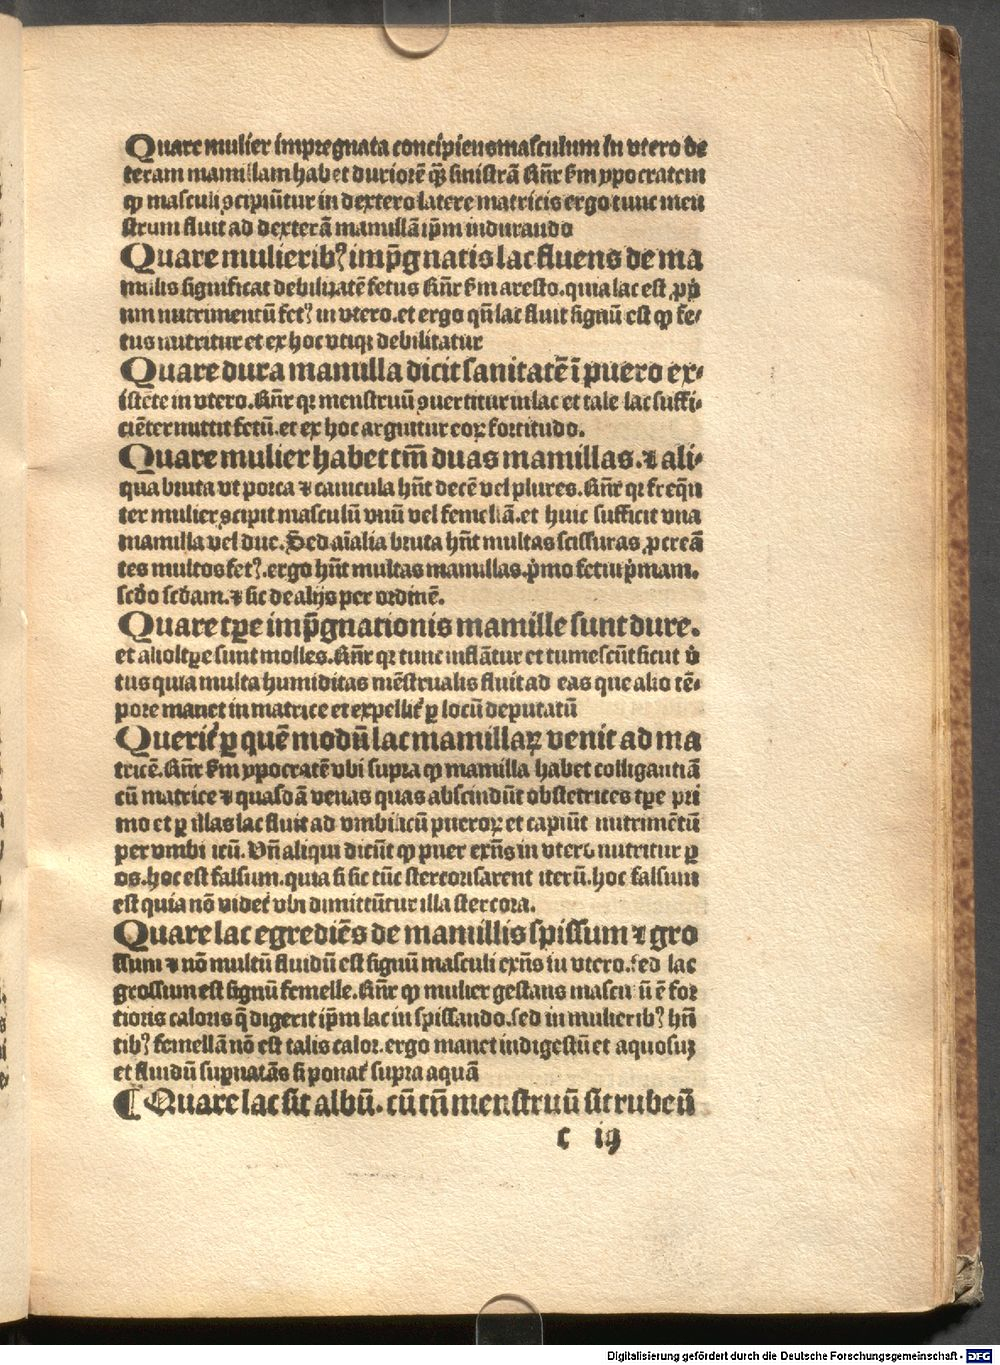 Quare mulier impregnata concipiens masculum in vtero de
teram mamillam habet duriorē q̄ꝫ sinistrā Rn̄r ẜm ypocratem
ꝙ masculi ꝯcipiūtur in dextero latere matricis ergo tunc men
struum fluit ad dexterā mamillā ip̄m indurando
Quare mulierib⁹ imp̄gnatis lac fluens de ma
millis significat debilitatē fetus Rn̄r ẜm aresto. quia lac est ꝓp̄i
um nutrimentū fet⁹ in vtero. et ergo qn̄ lac fluit signū est ꝙ fe⸗
tus nutritur et ex hoc vtiqꝫ debilitatur
Quare dura mamilla dicit sanitatē ī puero ex⸗
istēte in vtero. Rn̄r qꝛ menstruū ꝯuertitur in lac et tale lac suffi⸗
ciēter nutrit fetū. et ex hoc arguitur eoꝝ fortitudo.
Quare mulier habet tm̄ duas mamillas. ⁊ ali⸗
qua bruta vt porca ⁊ canicula hn̄t decē vel plures. Rn̄r qꝛ freq̄n
ter mulier ꝯcipit masculū vnū vel femellā. et huic sufficit vna
mamilla vel due. Sed aīalia bruta hn̄t multas scissuras ꝓcreā
tes multos fet⁹. ergo hn̄t multas mamillas. p̄mo fetui p̄mam.
scd̄o scd̄am. ⁊ sic de alijs per ordinē.
Quare tꝑe imp̄gnationis mamille sunt dure.
et alio tꝑe sunt molles. Rn̄r qꝛ tunc inflātur et tumescūt sicut v̄
tus quia multa humiditas mēstrualis fluit ad eas que alio tē⸗
pore manet in matrice et expellit᷑ ꝑ locū deputatū
Querit᷑ ꝑ quē modū lac mamillaꝝ venit ad ma
tricē. Rn̄r ẜm ypocratē vbi supra ꝙ mamilla habet colligantiā
cū matrice ⁊ quasdā venas quas abscindūt obstetrices tꝑe pri
mo et ꝑ illas lac fluit ad vmbilicū pueroꝝ et capiūt nutrimētū
per vmbilicū. Vn̄ aliqui dicūt ꝙ puer exn̄s in vtero nutritur ꝑ
os. hoc est falsum. quia si sic tūc stercorisarent iterū. hoc falsum
est quia nō videt᷑ vbi dimittūtur illa stercora.
Quare lac egrediēs de mamillis spissum ⁊ gro
ssum ⁊ nō multū fluidū est signū masculi exn̄s in vtero. sed lac
grossum est signū femelle. Rn̄r ꝙ mulier gestans masculū ē for
tioris caloris q̄ digerit ip̄m lac inspissando. sed in mulierib⁹ hn̄
tib⁹ femellā nō est talis calor. ergo manet indigestū et aquosuꝫ
et fluidū suꝑnatās si ponat᷑ supra aquā
¶ Quare lac sit albū. cū tn̄ menstruū sit rubeū
c iij
Digitalisierung gefördert durch die Deutsche Forschungsgemeinschaft - DFG